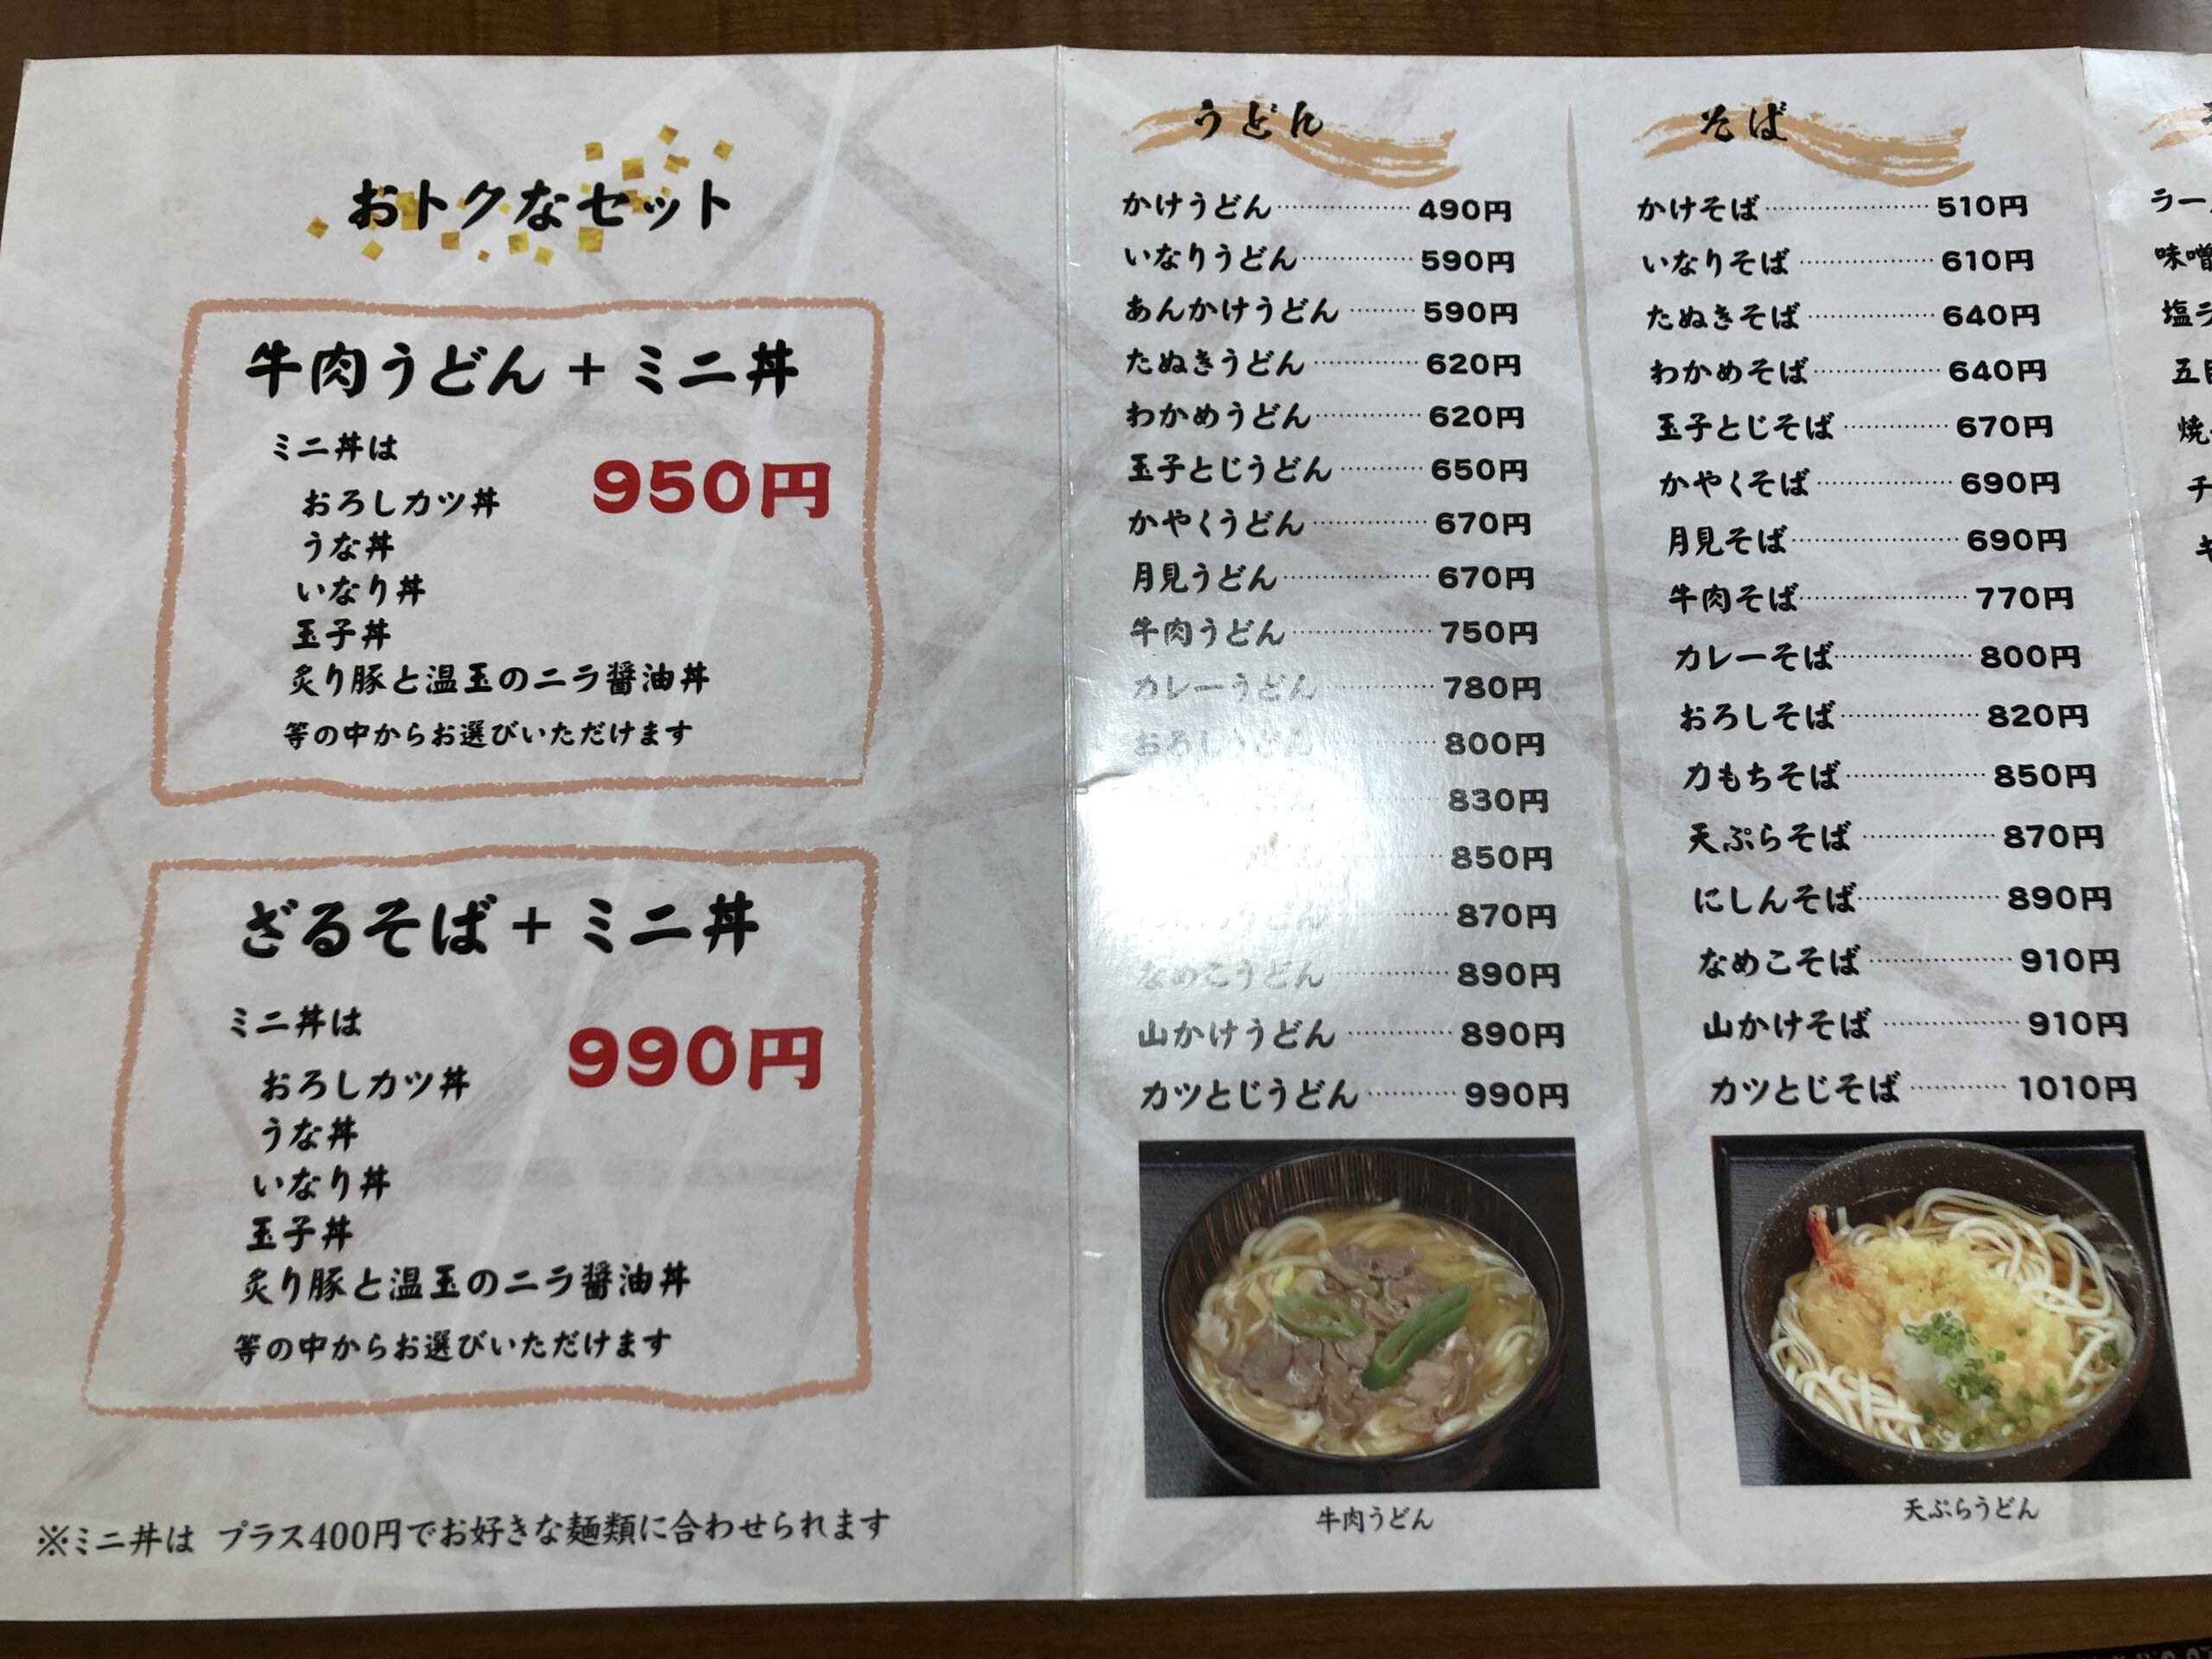 おトクなセット
牛肉うどん + ミニ丼
ミニ丼は
950円
おろしカツ丼
うな丼
いなり丼
玉子丼
炙り豚と温玉のニラ醤油丼
等の中からお選びいただけます
ざるそば + ミニ丼
ミニ丼は
990円
おろしカツ丼
うな丼
いなり丼
玉子丼
炙り豚と温玉のニラ醤油丼
等の中からお選びいただけます
※ミニ丼は プラス400円でお好きな麺類に合わせられます
うどん
かけうどん 490円
いなりうどん 590円
あんかけうどん 590円
たぬきうどん 620円
わかめうどん 620円
玉子とじうどん 650円
かやくうどん 670円
月見うどん 670円
牛肉うどん 750円
カレーうどん 780円
おろしうどん 800円
830円
850円
870円
なめこうどん 890円
山かけうどん 890円
カツとじうどん 990円
牛肉うどん
そば
かけそば 510円
いなりそば 610円
たぬきそば 640円
わかめそば 640円
玉子とじそば 670円
かやくそば 690円
月見そば 690円
牛肉そば 770円
カレーそば 800円
おろしそば 820円
力もちそば 850円
天ぷらそば 870円
にしんそば 890円
なめこそば 910円
山かけそば 910円
カツとじそば 1010円
天ぷらうどん
ラー
味噌
塩ラ
五目
焼
チ